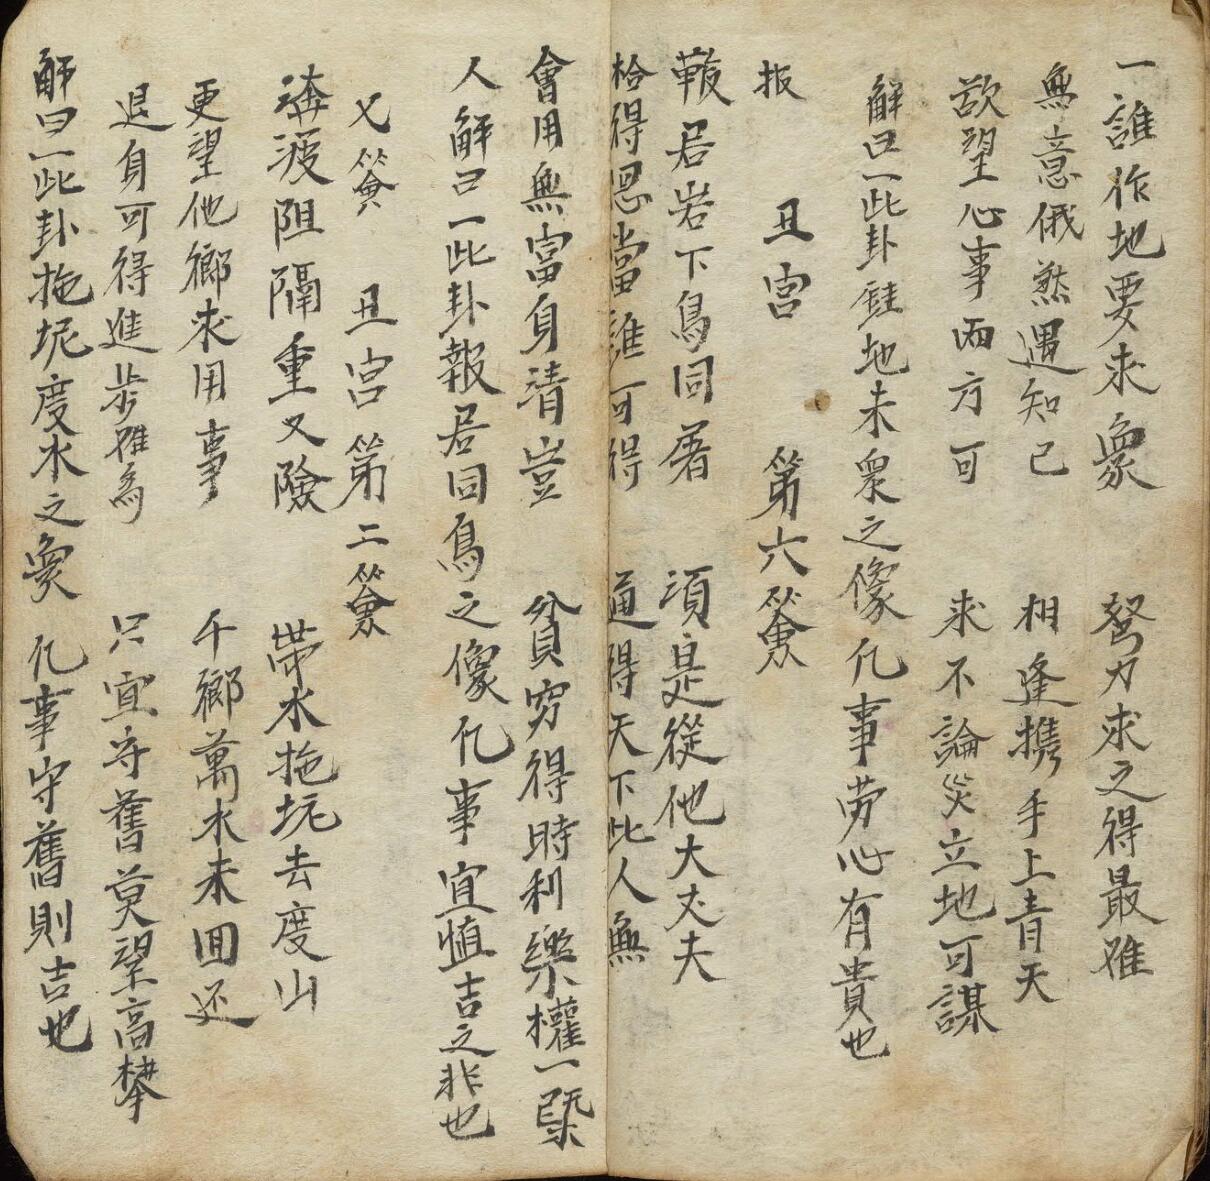 一誰作地要求衆　努力求之得最雅
無意俄然遇知己　相逢携手上青天
欲望心事両方可　求不論災立地可謀
解曰一此卦 地未衆之像凢事劳心有貴也
报　丑宫　第六簽
君岩下鳥同屠　須是從他大丈夫
拾得恩當誰可得　通得天下此人無
會用無富身清豈　貧穷得時利樂權一
人解曰一此卦報君同鳥之像凢事宜慎吉之非也
又簽　丑宫第二簽
波阻隔重又險　帶水拖坭去度山
更望他鄉求用事　千鄉萬水未囬还
退身可得進步 為　只宜守舊莫望高攀
解曰一此卦拖坭度水之象　凢事守舊則吉也